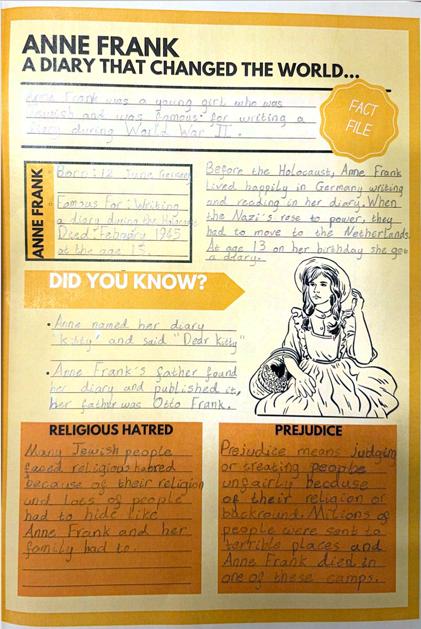 ANNE FRANK
A DIARY THAT CHANGED THE WORLD...
Anne Frank was a young girl who was
Jewish and was famous for writing a
diary during World War II.
FACT
FILE
ANNE FRANK
Born: 12 June
Famous For: Writing
a diary during the
Died: February 1945
at the age 15.
Before the Holocaust, Anne Frank
lived happily in Germany writing
and reading in her diary. When
the Nazi's rose to power, they
had to move to the Netherlands.
At age 13 on her birthday she got
a diary.
DID YOU KNOW?
• Anne named her diary
"kitty" and said "Dear kitty"
• Anne Frank's father found
her diary and published it,
her father was Otto Frank.
RELIGIOUS HATRED
Many Jewish people
faced religious hatred
because of their religion
and lots of people
had to hide like
Anne Frank and her
family had to.
PREJUDICE
Prejudice means judging
or treating people
unfairly because
of their religion or
backround. Milions of
people were sent to
terrible places and
Anne Frank died in
one of these camps.